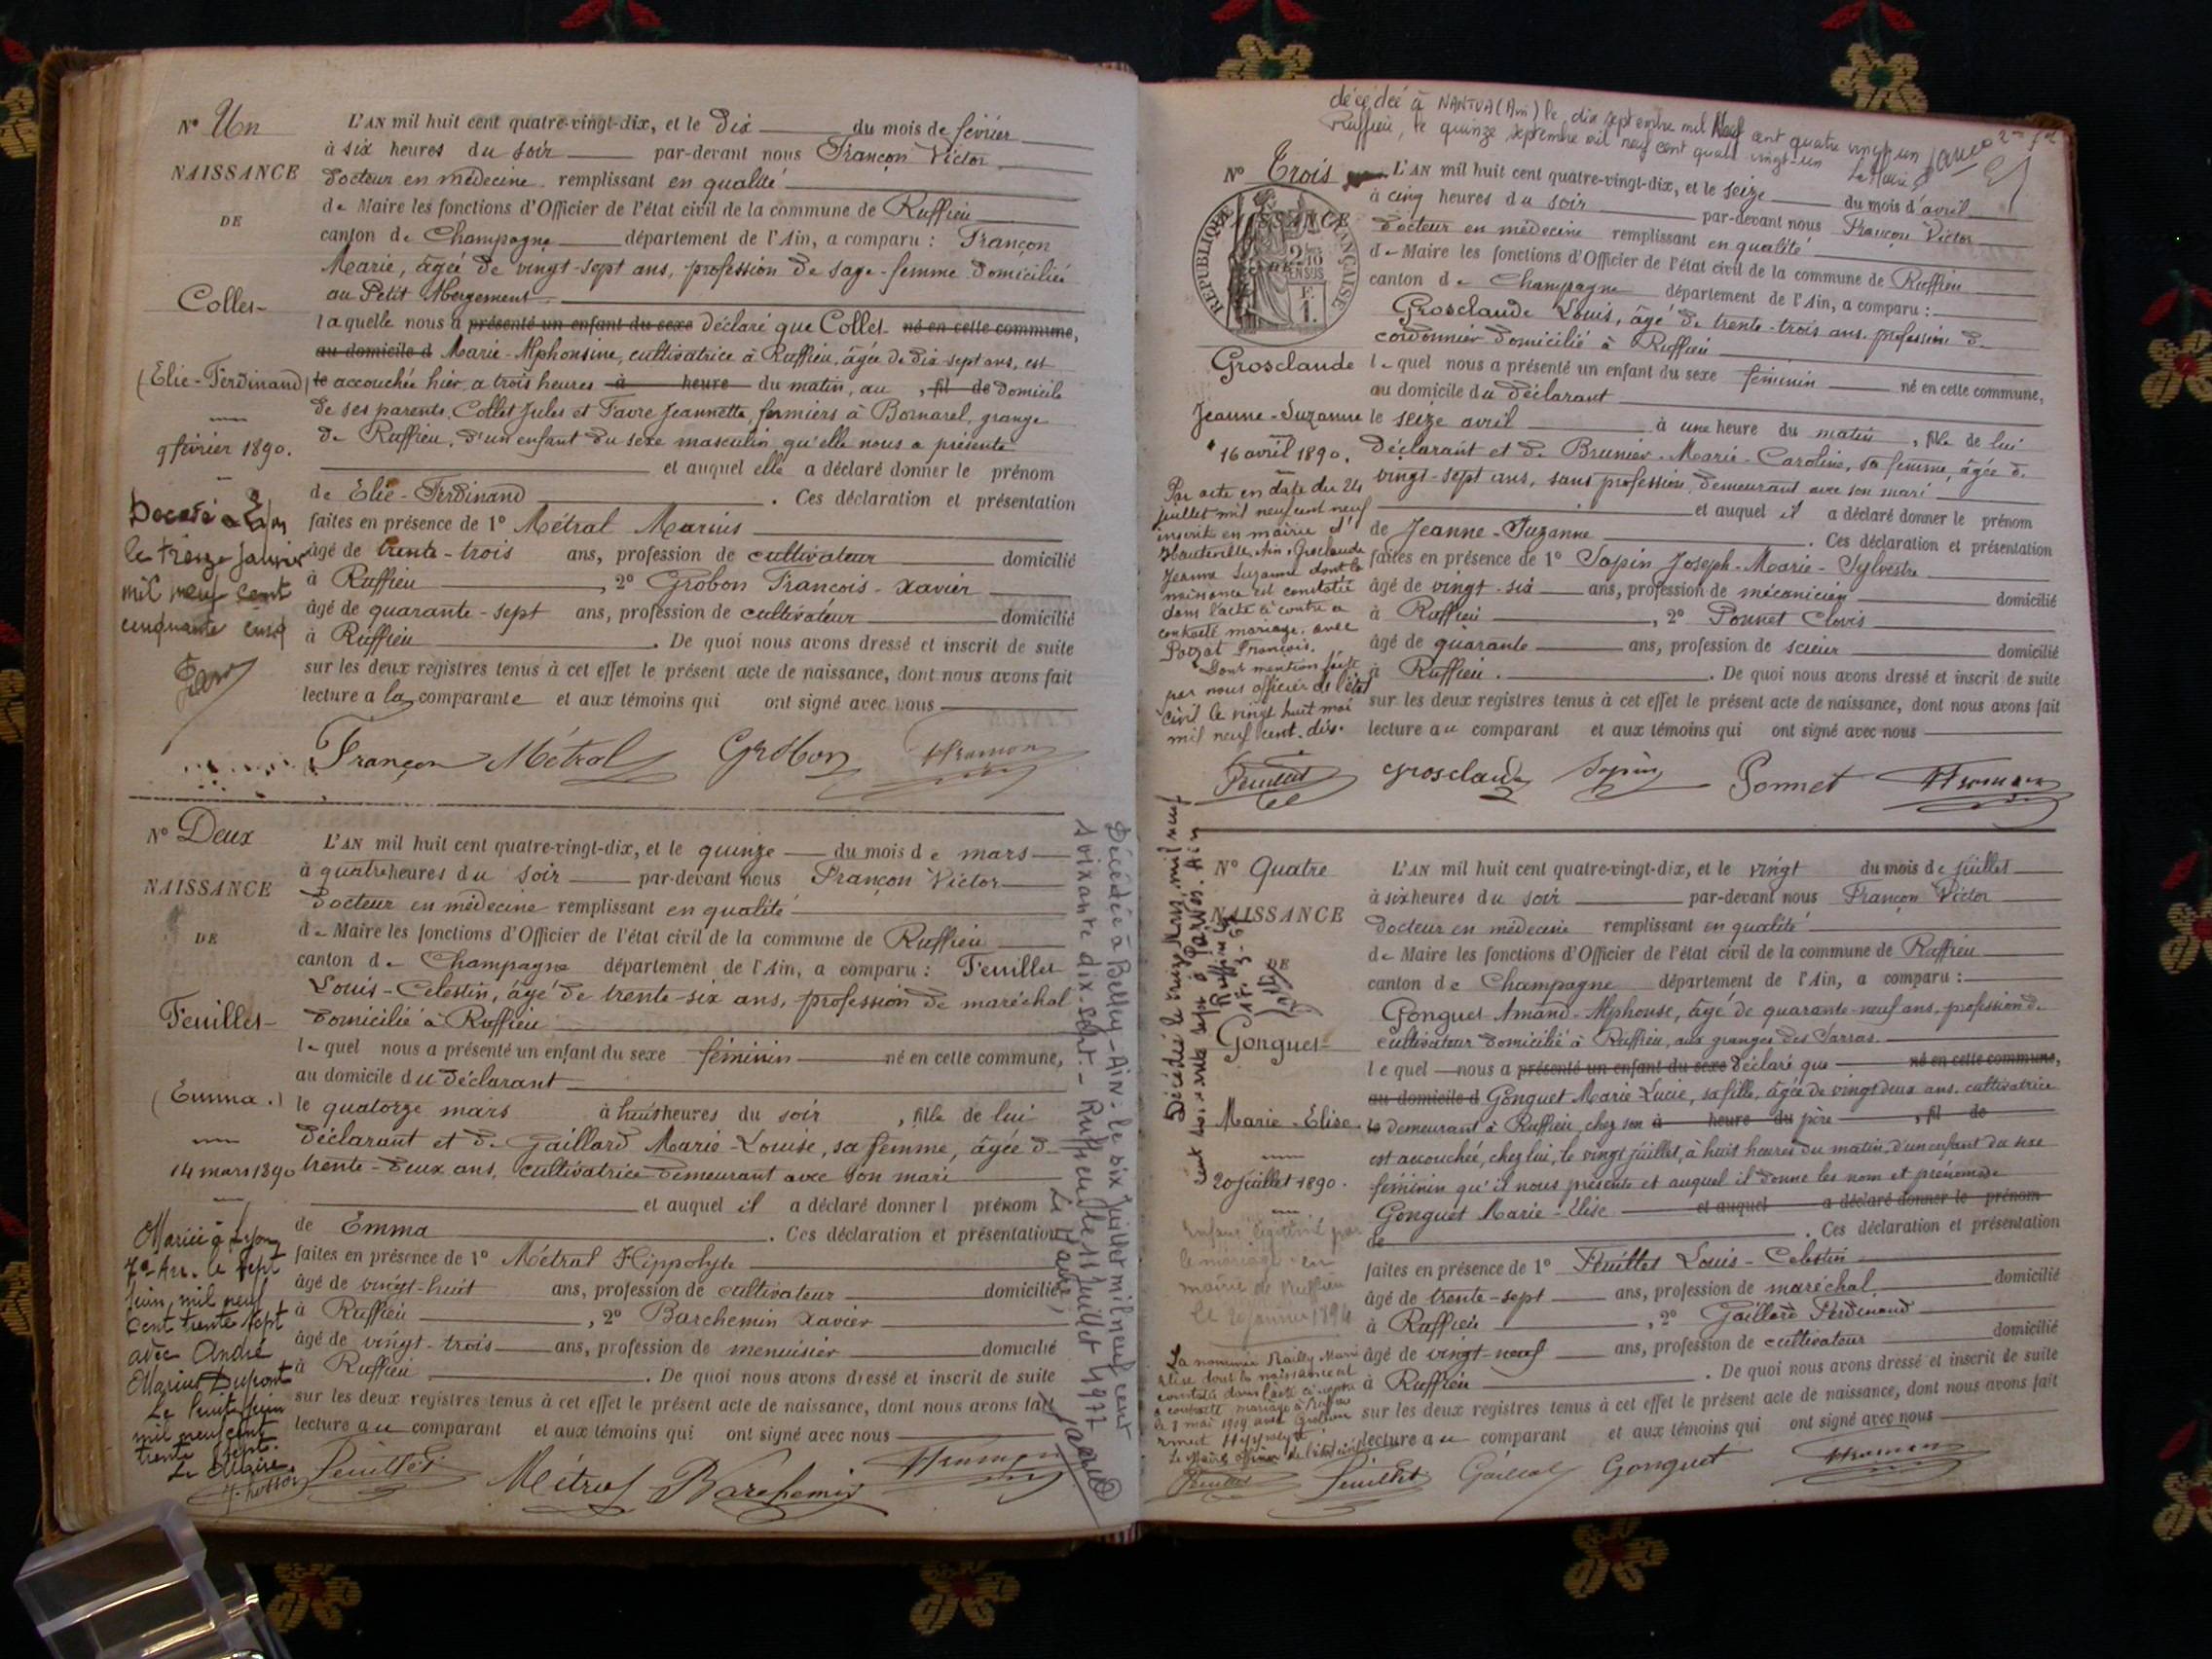 N° Un
NAISSANCE
DE
Collet
(Elie-Ferdinand)
9 février 1890.
le treize janvier
mil neuf cent
cinquante cinq
L'AN mil huit cent quatre-vingt-dix, et le Dix du mois de février
à six heures du soir par-devant nous Françon Victor
docteur en médecine remplissant en qualité
de Maire les fonctions d'Officier de l'état civil de la commune de Ruffieu
canton de Champagne département de l'Ain, a comparu : Françon
Marie, âgée de vingt-sept ans, profession de sage-femme domiciliée
au Petit Abergement
laquelle nous a présenté un enfant du sexe déclaré que Collet né en cette commune,
au domicile d Marie-Alphonsine, cultivatrice à Ruffieu, âgée de dix sept ans, est
le accouchée hier, a trois heures à heure du matin, au , fil de domicile
de ses parents, Collet Jules et Favre Jeannette, fermiers à Bornarel, grange
de Ruffieu, d'un enfant du sexe masculin qu'elle nous a présenté
et auquel elle a déclaré donner le prénom
de Elie-Ferdinand . Ces déclaration et présentation
faites en présence de 1° Métral Marius
âgé de trente-trois ans, profession de cultivateur domicilié
à Ruffieu , 2° Grobon François-Xavier
âgé de quarante-sept ans, profession de cultivateur domicilié
à Ruffieu . De quoi nous avons dressé et inscrit de suite
sur les deux registres tenus à cet effet le présent acte de naissance, dont nous avons fait
lecture a la comparante et aux témoins qui ont signé avec nous
Françon Métral Grobon VFrançon
N° Deux
NAISSANCE
DE
Feuillet
(Emma.)
14 mars 1890
Mariée à Lyon
7e Arr. le sept
juin mil neuf
cent trente sept
avec André
Marius Dupont
Le huit juin
mil neuf cent
trente sept.
Le Maire,
L'AN mil huit cent quatre-vingt-dix, et le quinze du mois de mars
à quatre heures du soir par-devant nous Françon Victor
docteur en médecine remplissant en qualité
de Maire les fonctions d'Officier de l'état civil de la commune de Ruffieu
canton de Champagne département de l'Ain, a comparu : Feuillet
Louis-Celestin, âgé de trente-six ans, profession de maréchal
domicilié à Ruffieu
lequel nous a présenté un enfant du sexe féminin né en cette commune,
au domicile du déclarant
le quatorze mars à huit heures du soir , fille de lui
déclarant et de Gaillard Marie-Louise, sa femme, âgée de
trente-deux ans, cultivatrice demeurant avec son mari
et auquel il a déclaré donner l prénom
de Emma . Ces déclaration et présentation
faites en présence de 1° Métral Hippolyte
âgé de vingt-huit ans, profession de cultivateur domicilié
à Ruffieu , 2° Barchemin Xavier
âgé de vingt-trois ans, profession de menuisier domicilié
à Ruffieu . De quoi nous avons dressé et inscrit de suite
sur les deux registres tenus à cet effet le présent acte de naissance, dont nous avons fait
lecture au comparant et aux témoins qui ont signé avec nous
Feuillet Métral Barchemin VFrançon
Décédée à Belley-Ain-le six juillet mil neuf cent
soixante dix-sept - Ruffieu le 11 juillet 1977
Le Maire,
décédée à NANTUA (Ain) le dix septembre mil neuf cent quatre vingt un
Ruffieu, le quinze septembre mil neuf cent quatre vingt-un Le Maire
N° Trois
NAISSANCE
REPUBLIQUE FRANÇAISE
2/10 EN SUS
Grosclaude
Jeanne-Suzanne
16 avril 1890.
Par acte en date du 24
juillet mil neuf cent neuf
inscrite en mairie d'
Hauteville, Ain, Grosclaude
Jeanne Suzanne dont la
naissance est constatée
dans l'acte ci contre a
contracté mariage avec
Poizat François.
Dont mention faite
par nous officier de l'état
civil le vingt huit mai
mil neuf cent dix.
L'AN mil huit cent quatre-vingt-dix, et le seize du mois d'avril
à cinq heures du soir par-devant nous Françon Victor
docteur en médecine remplissant en qualité
de Maire les fonctions d'Officier de l'état civil de la commune de Ruffieu
canton de Champagne département de l'Ain, a comparu :
Grosclaude Louis, âgé de trente-trois ans, profession de
cordonnier domicilié à Ruffieu
lequel nous a présenté un enfant du sexe féminin né en cette commune,
au domicile du déclarant
le seize avril à une heure du matin , fille de lui
déclarant et de Brunier Marie-Caroline, sa femme, âgée de
vingt-sept ans, sans profession, demeurant avec son mari
et auquel il a déclaré donner le prénom
de Jeanne-Suzanne . Ces déclaration et présentation
faites en présence de 1° Sapin Joseph-Marie-Sylvestre
âgé de vingt-six ans, profession de mécanicien domicilié
à Ruffieu , 2° Ponnet Clovis
âgé de quarante ans, profession de scieur domicilié
à Ruffieu . De quoi nous avons dressé et inscrit de suite
sur les deux registres tenus à cet effet le présent acte de naissance, dont nous avons fait
lecture au comparant et aux témoins qui ont signé avec nous
Feuillet Grosclaude Sapin Ponnet VFrançon
N° Quatre
NAISSANCE
DE
Gonguet
Marie-Elise.
20 juillet 1890.
Enfant légitimé par
le mariage en
mairie de Ruffieu
le 20 janvier 1894
La nommée Railly Marie
Elise dont la naissance est
constatée dans l'acte ci-contre
a contracté mariage à Ruffieu
L'AN mil huit cent quatre-vingt-dix, et le vingt du mois de juillet
à six heures du soir par-devant nous Françon Victor
docteur en médecine remplissant en qualité
de Maire les fonctions d'Officier de l'état civil de la commune de Ruffieu
canton de Champagne département de l'Ain, a comparu :
Gonguet Amand-Alphonse, âgé de quarante-neuf ans, profession de
cultivateur domicilié à Ruffieu, aux granges des Sarras.
lequel nous a présenté un enfant du sexe déclaré que né en cette commune,
au domicile d Gonguet Marie Lucie, sa fille, âgée de vingt deux ans, cultivatrice
le demeurant à Ruffieu, chez son à heure du père , fil de
est accouchée, chez lui, le vingt juillet, à huit heures du matin, d'un enfant du sexe
féminin qu'il nous présente et auquel il donne les nom et prénoms de
Gonguet Marie-Elise et auquel a déclaré donner le prénom
de . Ces déclaration et présentation
faites en présence de 1° Feuillet Louis-Celestin
âgé de trente-sept ans, profession de maréchal domicilié
à Ruffieu , 2° Gaillard Ferdinand
âgé de vingt-neuf ans, profession de cultivateur domicilié
à Ruffieu . De quoi nous avons dressé et inscrit de suite
sur les deux registres tenus à cet effet le présent acte de naissance, dont nous avons fait
lecture au comparant et aux témoins qui ont signé avec nous
Feuillet Feuillet Gaillard Gonguet VFrançon